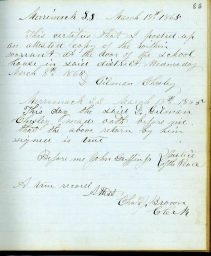 63
Merrimack SS March 13th 1865
This certifies that I posted up
an attested copy of the within
warrant at the door of the school
house in said district, Wednesday
March 8th 1865
Gilman
Merrimack SS March 13th 1865
This day the said Gilman
made oath before me
that the above return by him
signed is true
Before me John Justice
of the Peace
A true record
Attest
Chas. Brown
Clerk